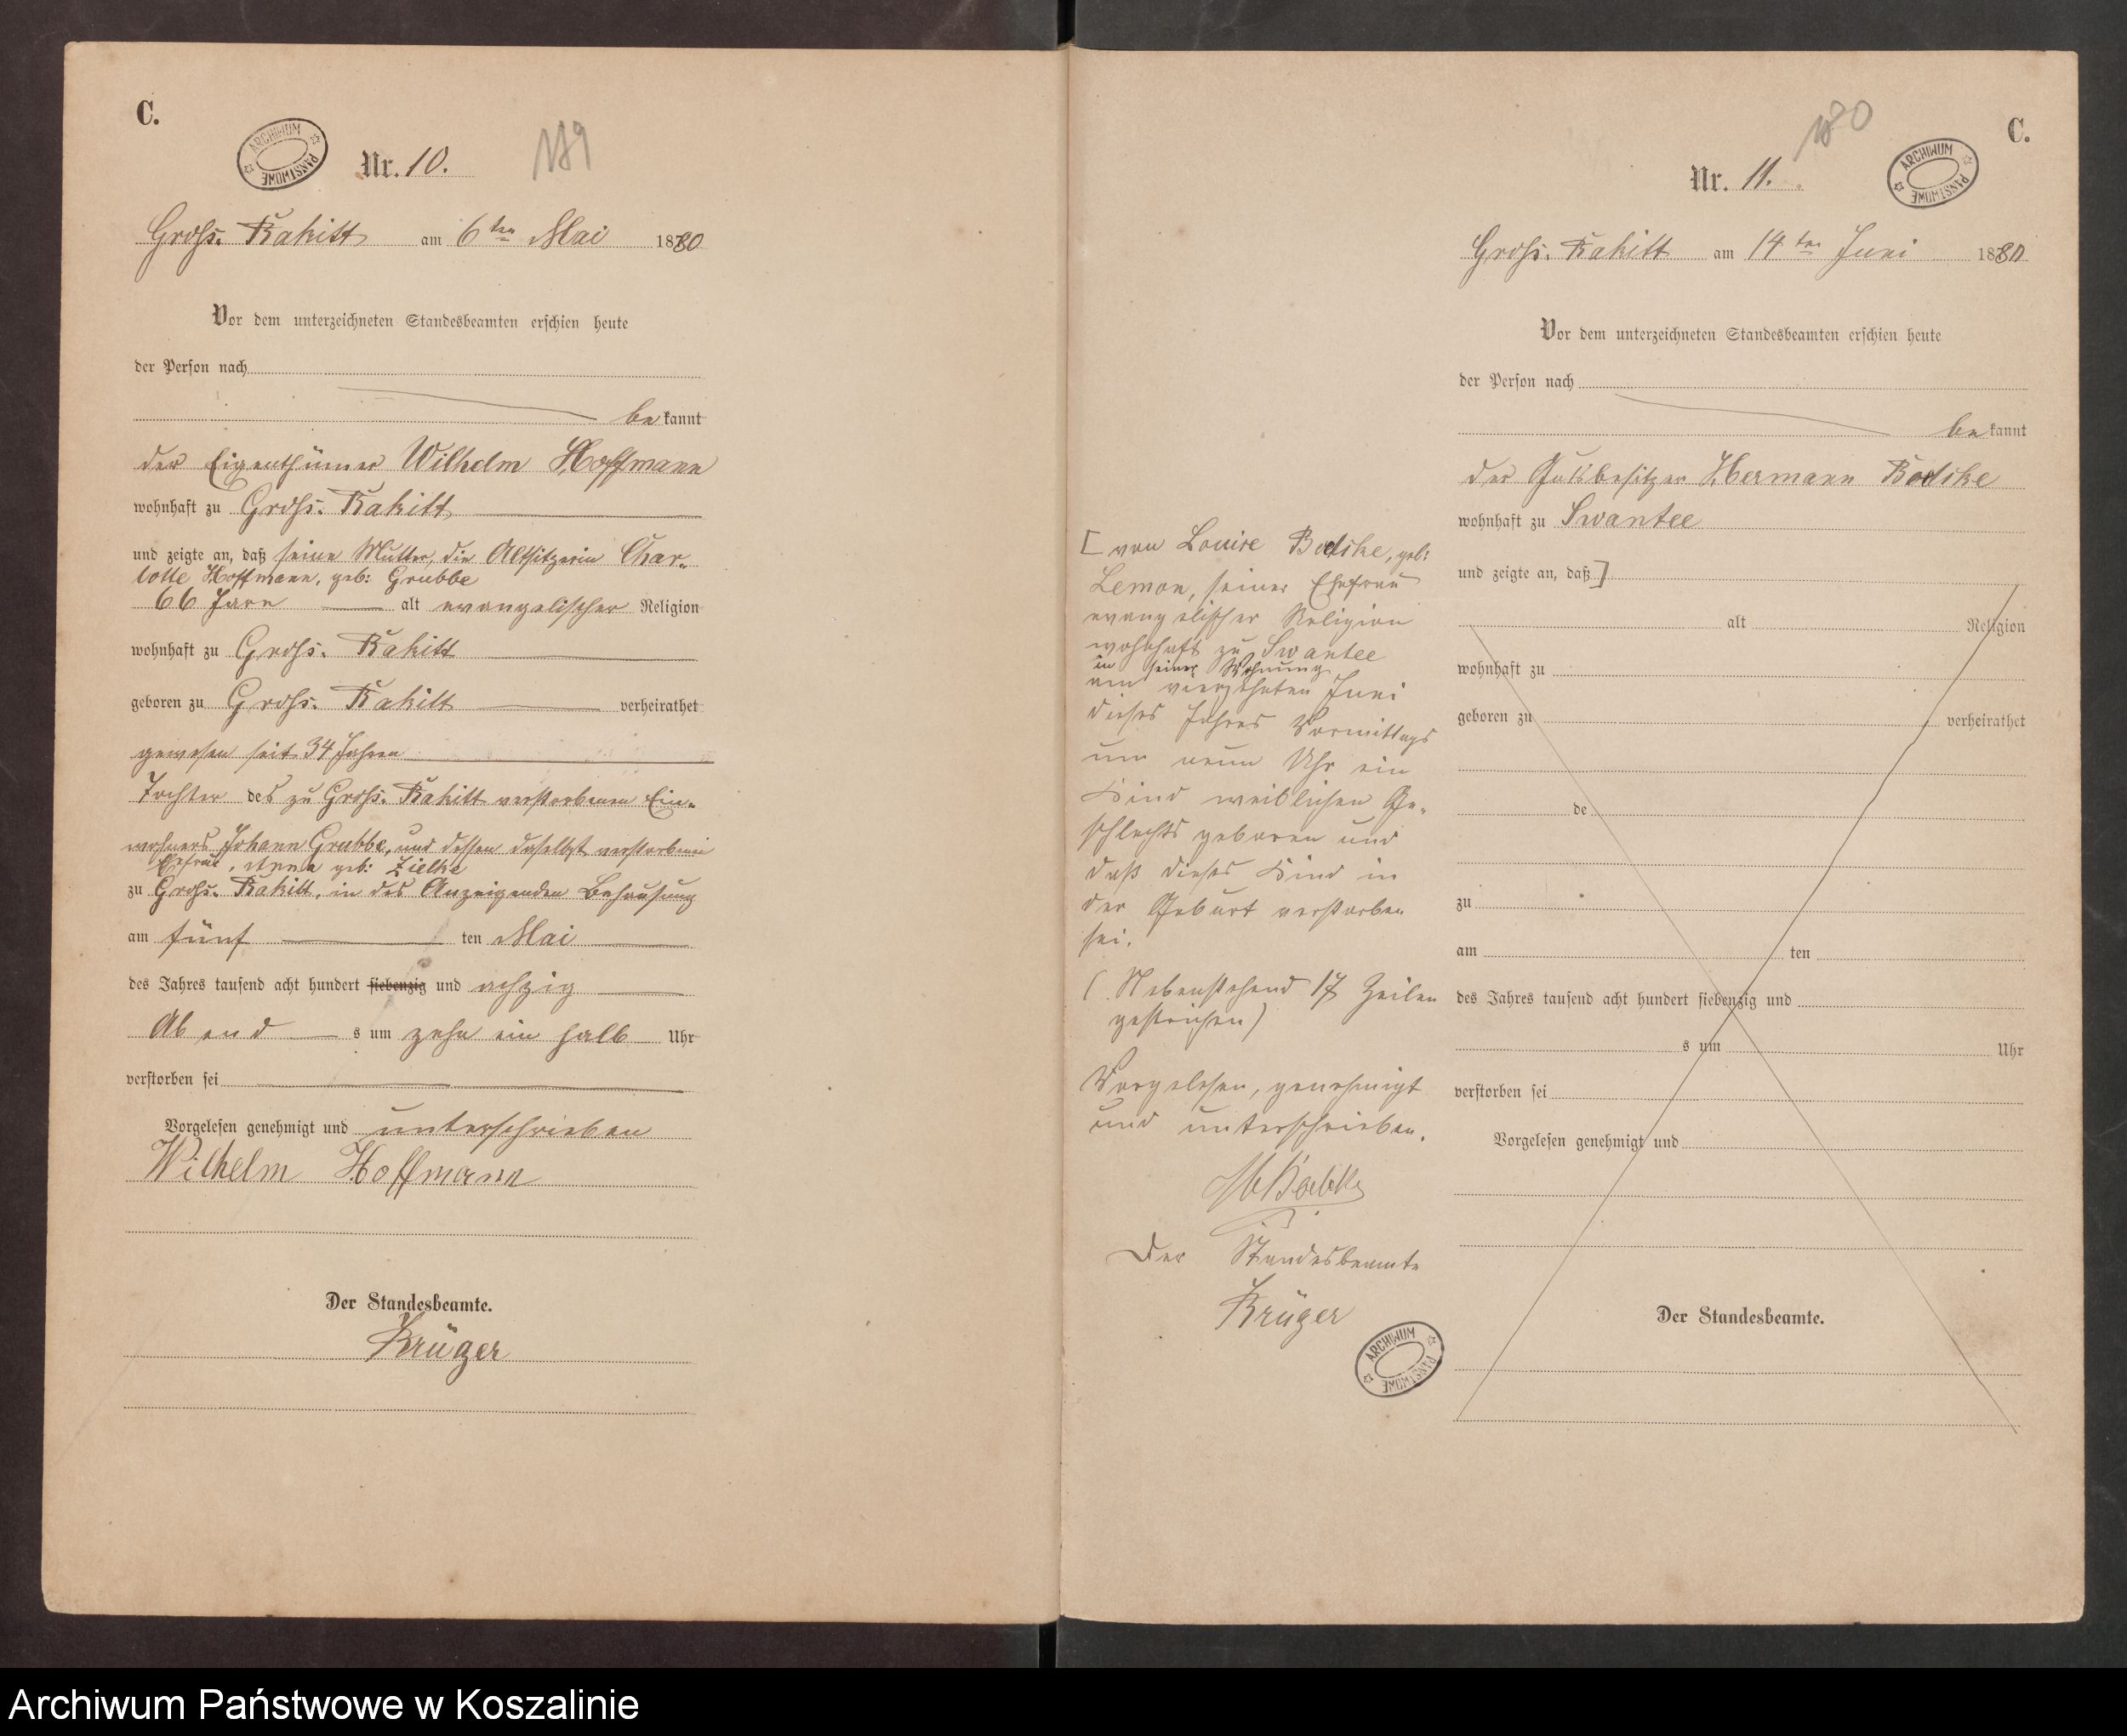 C.
ARCHIWUM PAŃSTWOWE
Nr. 10.
189
Groß-Rakitt am 6ten Mai 1880
Vor dem unterzeichneten Standesbeamten erschien heute
der Person nach
bekannt
der Eigenthümer Wilhelm Hoffmann
wohnhaft zu Groß-Rakitt
und zeigte an, daß seine Mutter, die Altsitzerin Char-
lotte Hoffmann, geb: Grubbe
66 Jare alt evangelischer Religion
wohnhaft zu Groß-Rakitt
geboren zu Groß-Rakitt verheirathet
gewesen seit 34 Jahren
Tochter des zu Groß-Rakitt verstorbenen Ein-
wohners Johann Grubbe, und dessen daselbst verstorbenen
Ehefrau, Anna geb: Zielke
zu Groß-Rakitt, in des Anzeigenden Behausung
am fünf ten Mai
des Jahres tausend acht hundert siebenzig und achzig
Abend s um zehn ein halb Uhr
verstorben sei
Vorgelesen genehmigt und unterschrieben
Wilhelm Hoffmann
Der Standesbeamte.
Krüger
180
C.
Nr. 11.
ARCHIWUM PAŃSTWOWE
Groß-Rakitt am 14ten Juni 1880
Vor dem unterzeichneten Standesbeamten erschien heute
der Person nach
bekannt
der Gutsbesitzer Hermann
wohnhaft zu Swantee
und zeigte an, daß]
alt Religion
wohnhaft zu
geboren zu verheirathet
de
zu
am ten
des Jahres tausend acht hundert siebenzig und
s um Uhr
verstorben sei
Vorgelesen genehmigt und
Der Standesbeamte.
[von Louise geb:
Lemon, seiner Ehefrau
evangelischer Religion
wohnhaft zu Swantee
in seiner Wohnung
am vierzehnten Juni
dieses Jahres Vormittags
um neun Uhr ein
Kind weiblichen Ge-
schlechts geboren und
daß dieses Kind in
der Geburt verstorben
sei.
(Nebenstehend 17 Zeilen
gestrichen)
Vorgelesen, genehmigt
und unterschrieben.
Der Standesbeamte
Krüger
ARCHIWUM PAŃSTWOWE
Archiwum Państwowe w Koszalinie